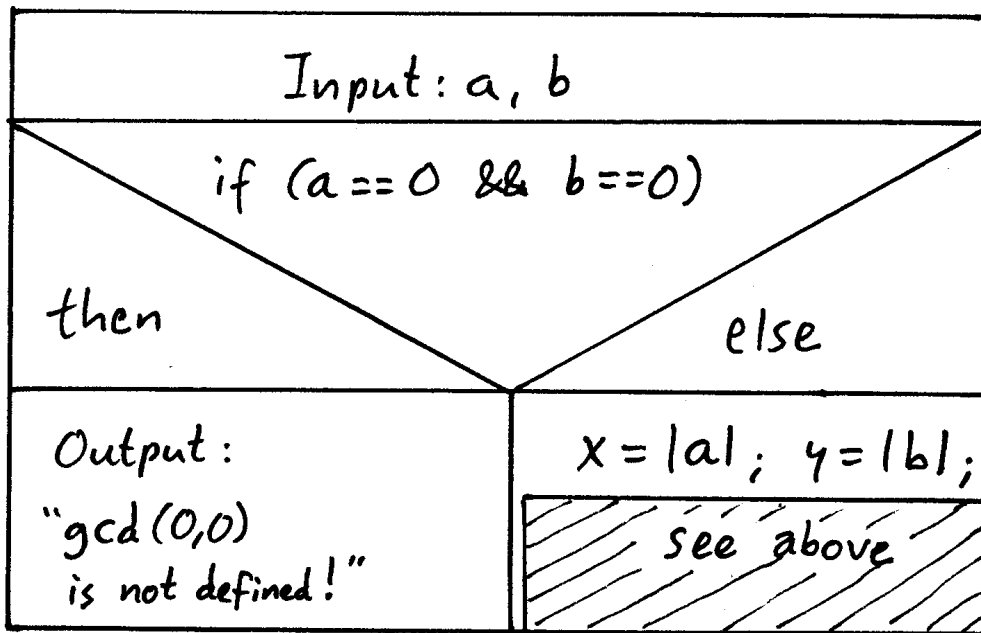 Input: a, b
if (a == 0 && b == 0)
then
else
Output:
"gcd (0,0)
is not defined!"
x = |a|; y = |b|;
see above